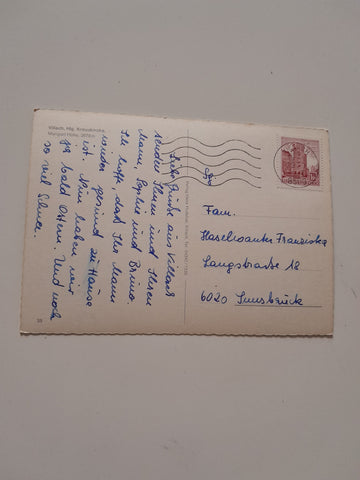 Villach, Hlg. Kreuzkirche,
Mangart Höhe, 2678 m
Liebe Grüße aus Villach
senden Ihnen und Ihrem
Mann, Sophie und Bruno.
Ich hoffe, daß Ihr Mann
wieder gesund zu Hause
ist. Nun haben wir
ja bald Ostern. Und noch
so viel Schnee.
Fam.
Haselwanter Franziska
Langstrasse 18
6020 Innsbruck